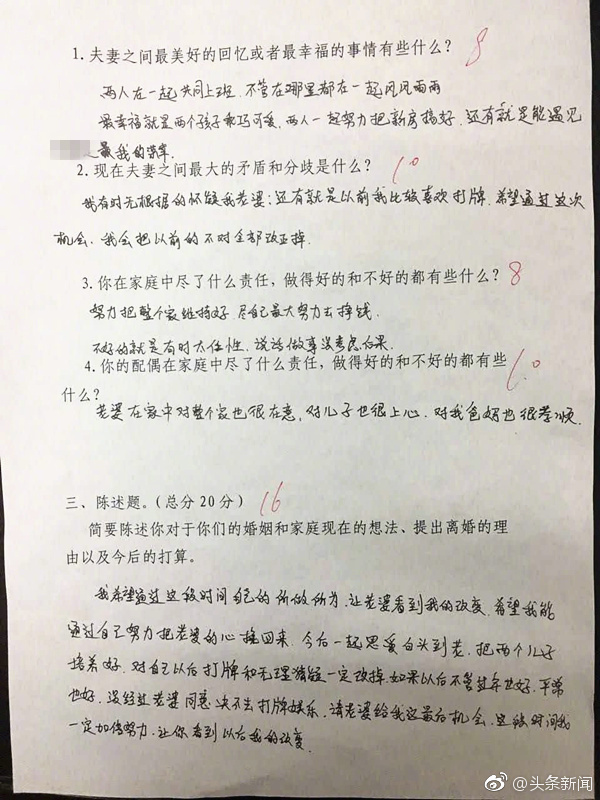 1. 夫妻之间最美好的回忆或者最幸福的事情有些什么？ 8
两人在一起共同上班，不管在哪里都在一起风风雨雨
最幸福就是两个孩子乖巧可爱，两人一起努力把新房搞好，还有就是能遇见
是我的幸福
2. 现在夫妻之间最大的矛盾和分歧是什么？ 10
我有时无根据的怀疑我老婆；还有就是以前我比较喜欢打牌。希望通过这次
机会，我会把以前的不对全部改正掉。
3. 你在家庭中尽了什么责任，做得好的和不好的都有些什么？ 8
努力把整个家维持好，尽自己最大努力去挣钱。
不好的就是有时太任性，说话做事没考虑后果。
4. 你的配偶在家庭中尽了什么责任，做得好的和不好的都有些
什么？ 10
老婆在家中对整个家也很在意，对儿子也很上心，对我爸妈也很孝顺。
三、陈述题。（总分20分） 16
简要陈述你对于你们的婚姻和家庭现在的想法、提出离婚的理
由以及今后的打算。
我希望通过这段时间自己的所做所为，让老婆看到我的改变，希望我能
通过自己努力把老婆的心挽回来，今后一起恩爱白头到老，把两个儿子
培养好，对自己以后打牌和无理猜疑一定改掉，如果以后不管过年也好，平常
也好，没经过老婆同意决不去打牌娱乐，请老婆给我这最后机会，这段时间我
一定加倍努力，让你看到以后我的改变。
@头条新闻